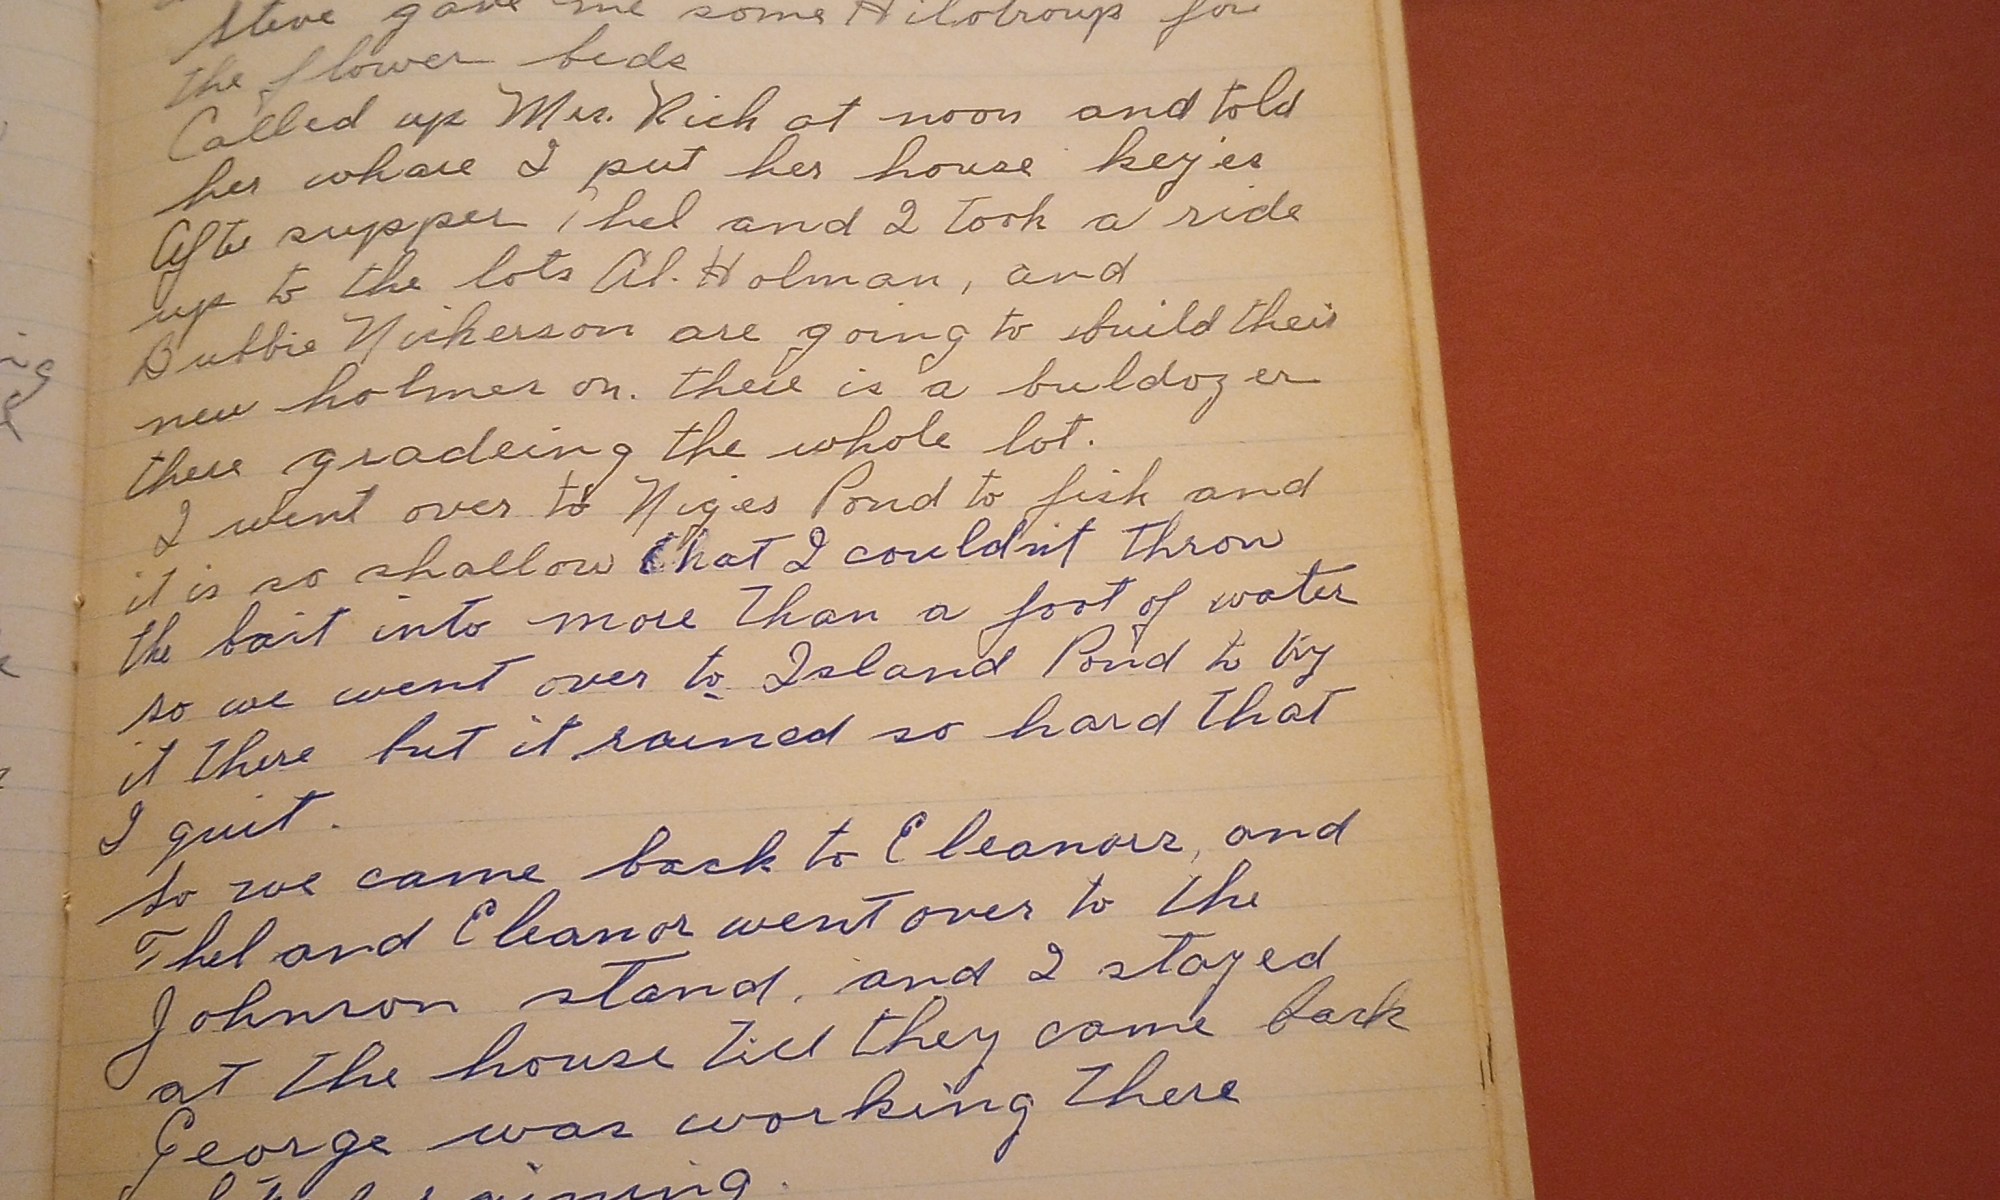 Steve gave me some Hilotroup for
the flower beds
Called up Mrs. Rich at noon and told
her whare I put her house keyes
Afte supper Thel and I took a ride
up to the lots Al. Holman, and
Bubbie Nickerson are going to build their
new holmes on. there is a buldozer
there gradeing the whole lot.
I went over to Niges Pond to fish and
it is so shallow that I couldn't throw
the bait into more than a foot of water
so we went over to Island Pond to try
it there but it rained so hard that
I quit.
So we came back to Eleanors, and
Thel and Eleanor went over to the
Johnson stand, and I stayed
at the house till they came back
George was working there
raining.